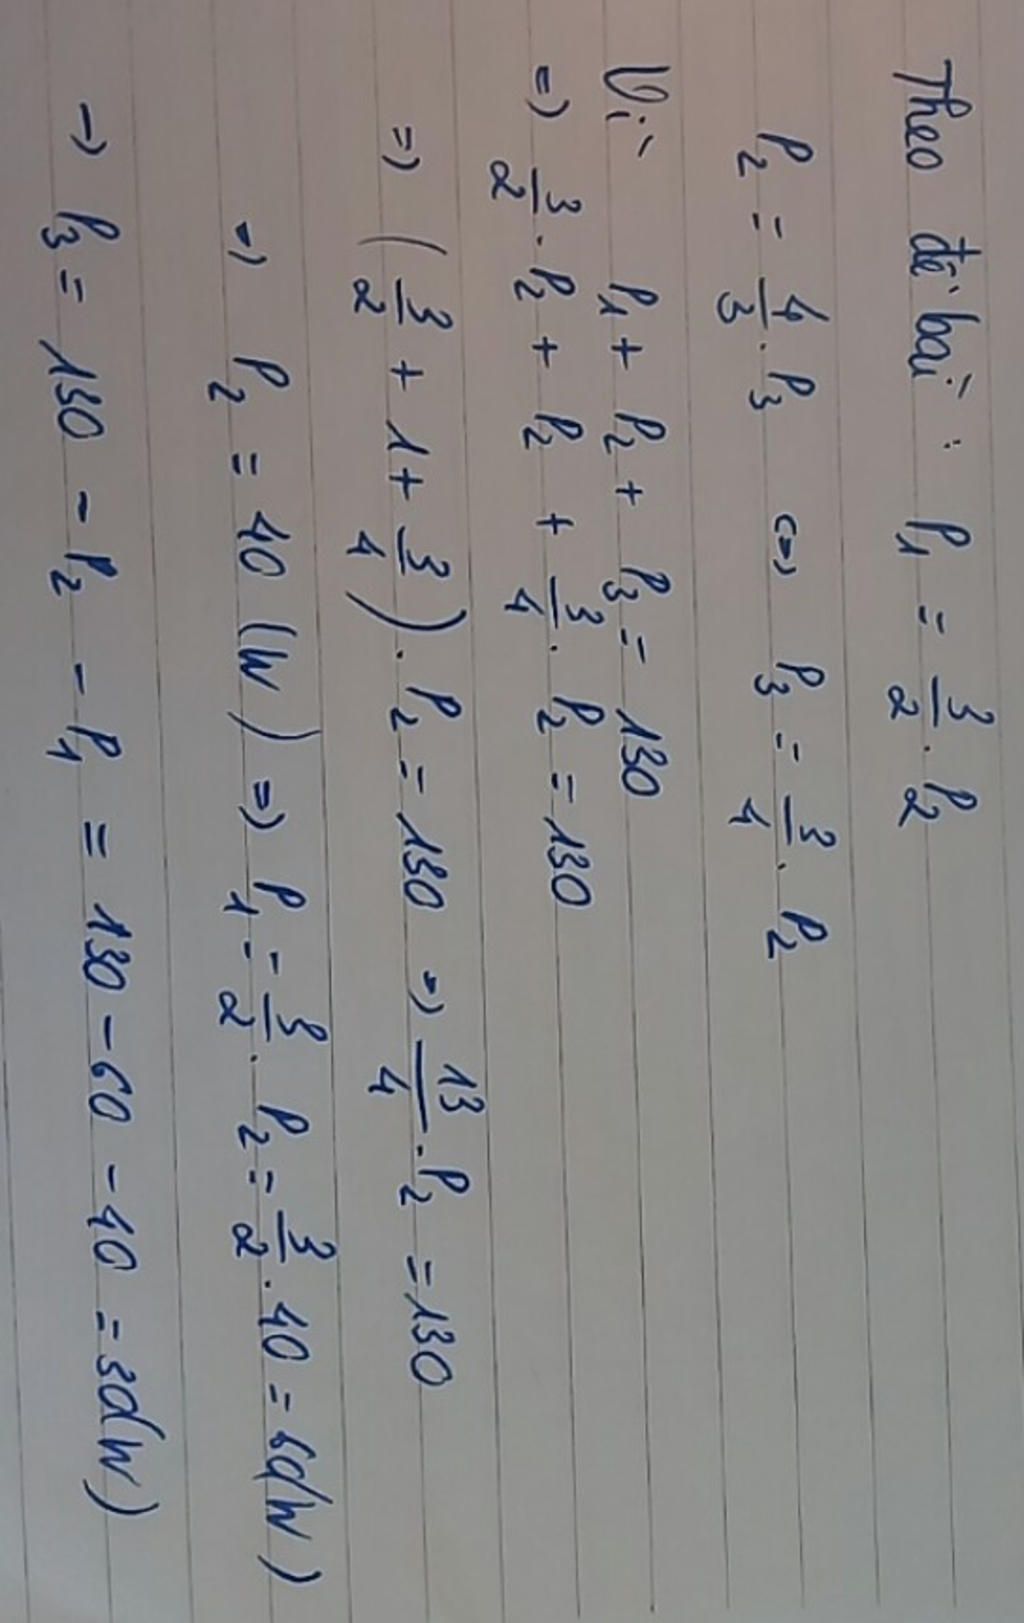 Theo đề bài: P₁ = 3/2 . P₂
P₂ = 4/3 . P₃ <=> P₃ = 3/4 . P₂
Vì P₁ + P₂ + P₃ = 130
=> 3/2 . P₂ + P₂ + 3/4 . P₂ = 130
=> (3/2 + 1 + 3/4) . P₂ = 130 => 13/4 . P₂ = 130
=> P₂ = 40 (W) => P₁ = 3/2 . P₂ = 3/2 . 40 = 60(W)
→ P₃ = 130 - P₂ - P₁ = 130 - 60 - 40 = 30(W)